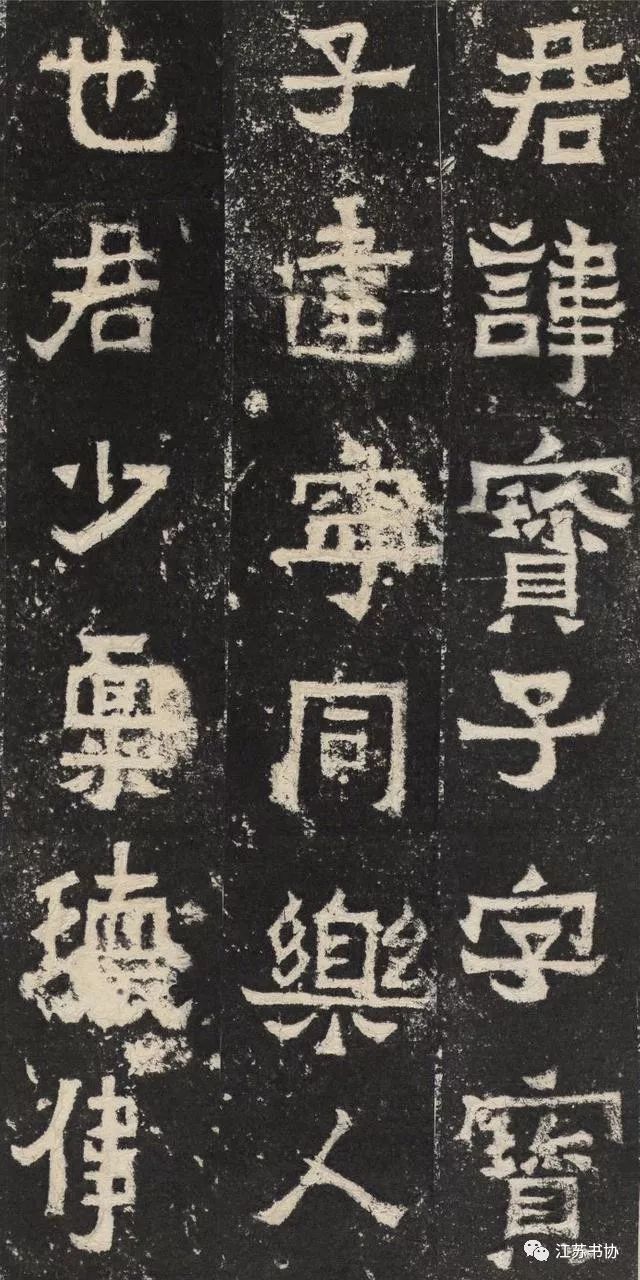 君諱寶子字寶
子建寧同樂人
也君少稟瓌偉
江苏书协